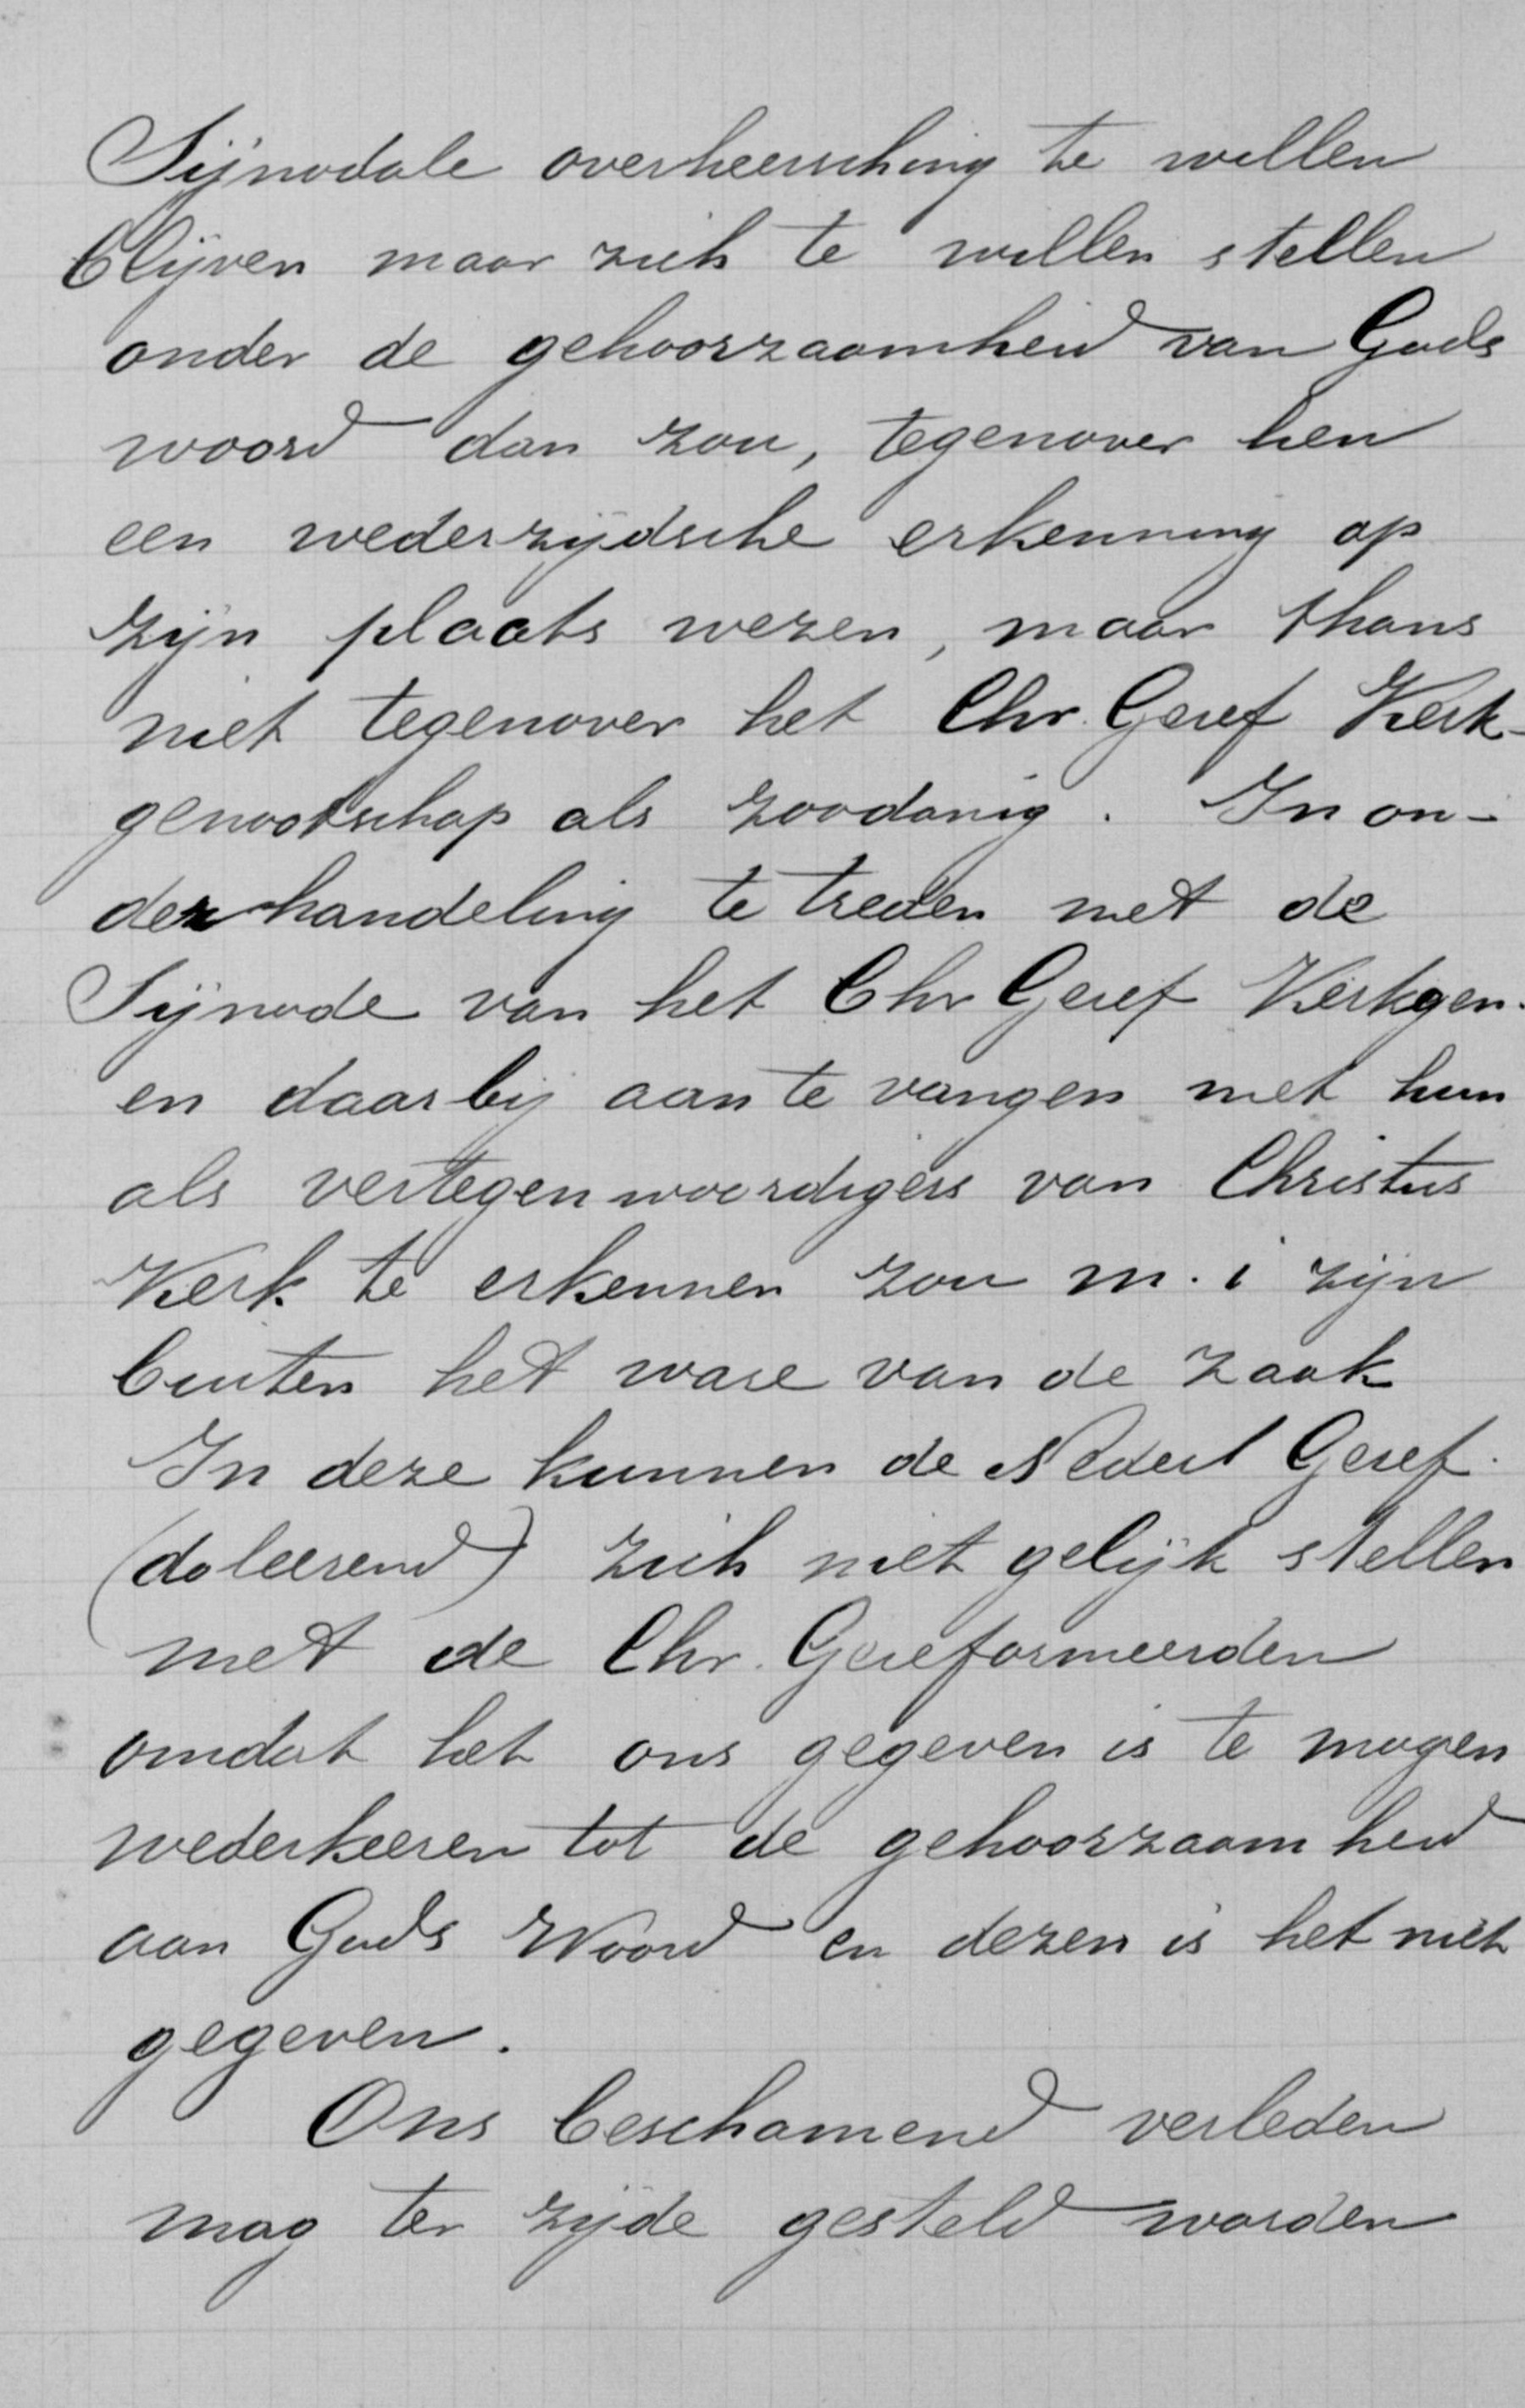 Sijnodale overheersching te willen
blijven maar zich te willen stellen
onder de gehoorzaamheid van Gods
woord dan zou, tegenover hen
een wederzijdsche erkenning op
zijn plaats wezen, maar thans
niet tegenover het Chr. Geref Kerk-
genootschap als zoodanig. In on-
derhandeling te treden met de
Sijnode van het Chr Geref Kerkgen.
en daarbij aan te vangen met hun
als vertegenwoordigers van Christus
Kerk te erkennen zou m. i zijn
buiten het ware van de zaak
In deze kunnen de Nederl Geref.
(doleerend) zich niet gelijk stellen
met de Chr. Gereformeerden
omdat het ons gegeven is te mogen
wederkeeren tot de gehoorzaamheid
aan Gods Woord en dezen is het niet
gegeven.
Ons beschamend verleden
mag ter zijde gesteld worden